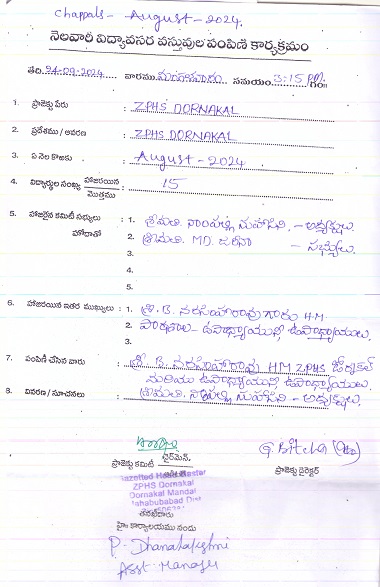 Chappals - August - 2024.
నెలవారీ విద్యావసర వస్తువుల పంపిణి కార్యక్రమం
తేది: 24-09-2024 వారము మంగళవారం సమయం 3:15 PM గం॥
1. ప్రాజెక్టు పేరు : ZPHS DORNAKAL
2. ప్రదేశము / ఆవరణ : ZPHS DORNAKAL
3. ఏ నెల కొఱకు : August - 2024
4. విద్యార్థుల సంఖ్య హాజరయిన / మొత్తము : 15
5. హాజరైన కమిటీ సభ్యులు : 1. శ్రీమతి. సుహాసిని. - అధ్యక్షులు.
హోదాతో 2. శ్రీమతి. MD. - సభ్యులు.
3.
4.
5.
6. హాజరయిన ఇతర ముఖ్యులు : 1. శ్రీ. B. నరసింహారావు గారు HM
2. పాఠశాల - ఉపాధ్యాయుని, ఉపాధ్యాయులు.
3.
7. పంపిణి చేసిన వారు : శ్రీ. B. నరసింహారావు HM ZPHS డోర్నకల్
మరియు ఉపాధ్యాయుని, ఉపాధ్యాయులు.
8. వివరణ / సూచనలు : శ్రీమతి. సుహాసిని - అధ్యక్షులు.
ప్రాజెక్టు కమిటీ ఛైర్మెన్,
ప్రాజెక్టు డైరెక్టర్
Gazetted Headmaster
ZPHS Dornakal
Dornakal Mandal
Mahabubabad Dist
హై॥ కార్యాలయము నందు
P. Dhanalakshmi
Asst Manager